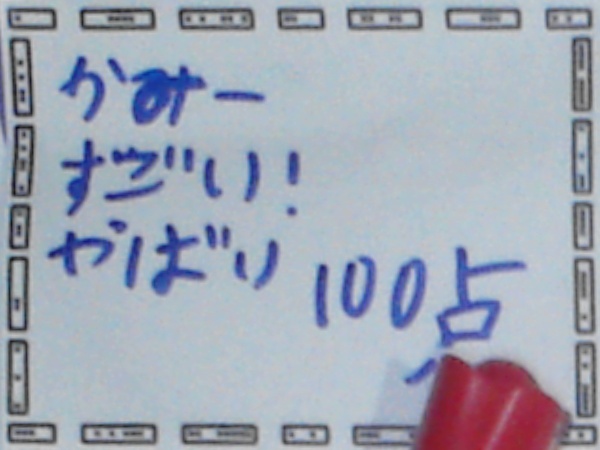 かみー
すごい!
やばり
100点